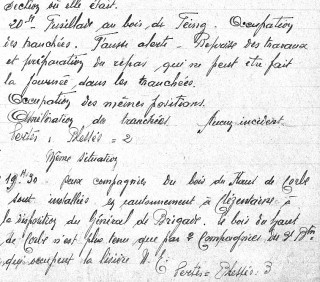 section où elle était.
20H Fusillade au bois de Feing. Occupation
des tranchées. Fausse alerte - Reprise des travaux
et préparation du repas qui ne peut être fait
la journée dans les tranchées.
Occupation des mêmes positions.
Amélioration de tranchées. Aucun incident.
Pertes : Blessés = 2
Même situation
19H30 Deux compagnies du bois du Haut de Corbe
sont installées en cantonnement à Clézentaine à
la disposition du Général de Brigade. Le bois du Haut
de Corbe n'est plus tenu que par 2 Compagnies du
qui occupent la lisière N.E.
Pertes = Blessés : 3